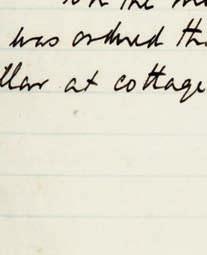 on the
was ordered th
llar at cottage